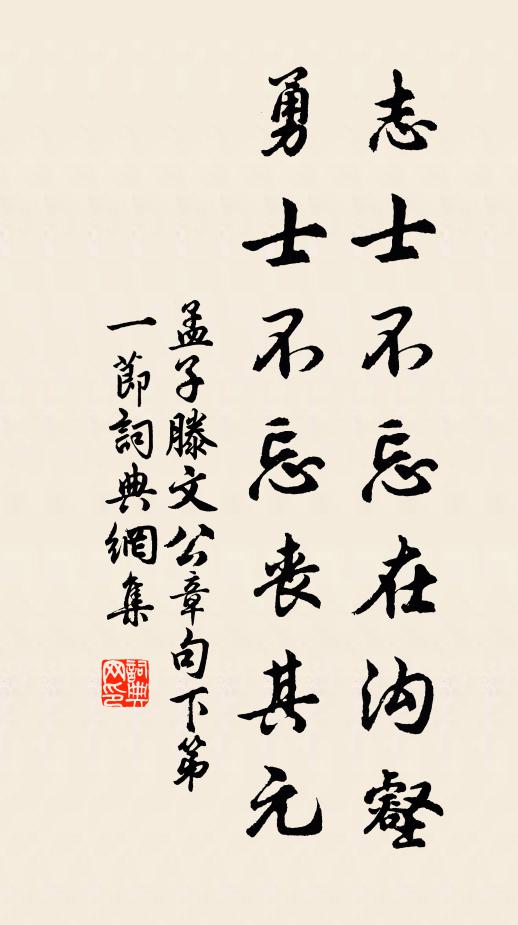 志士不忘在沟壑
勇士不忘丧其元
孟子滕文公章句下第
一節詞典網集
詞典
网印